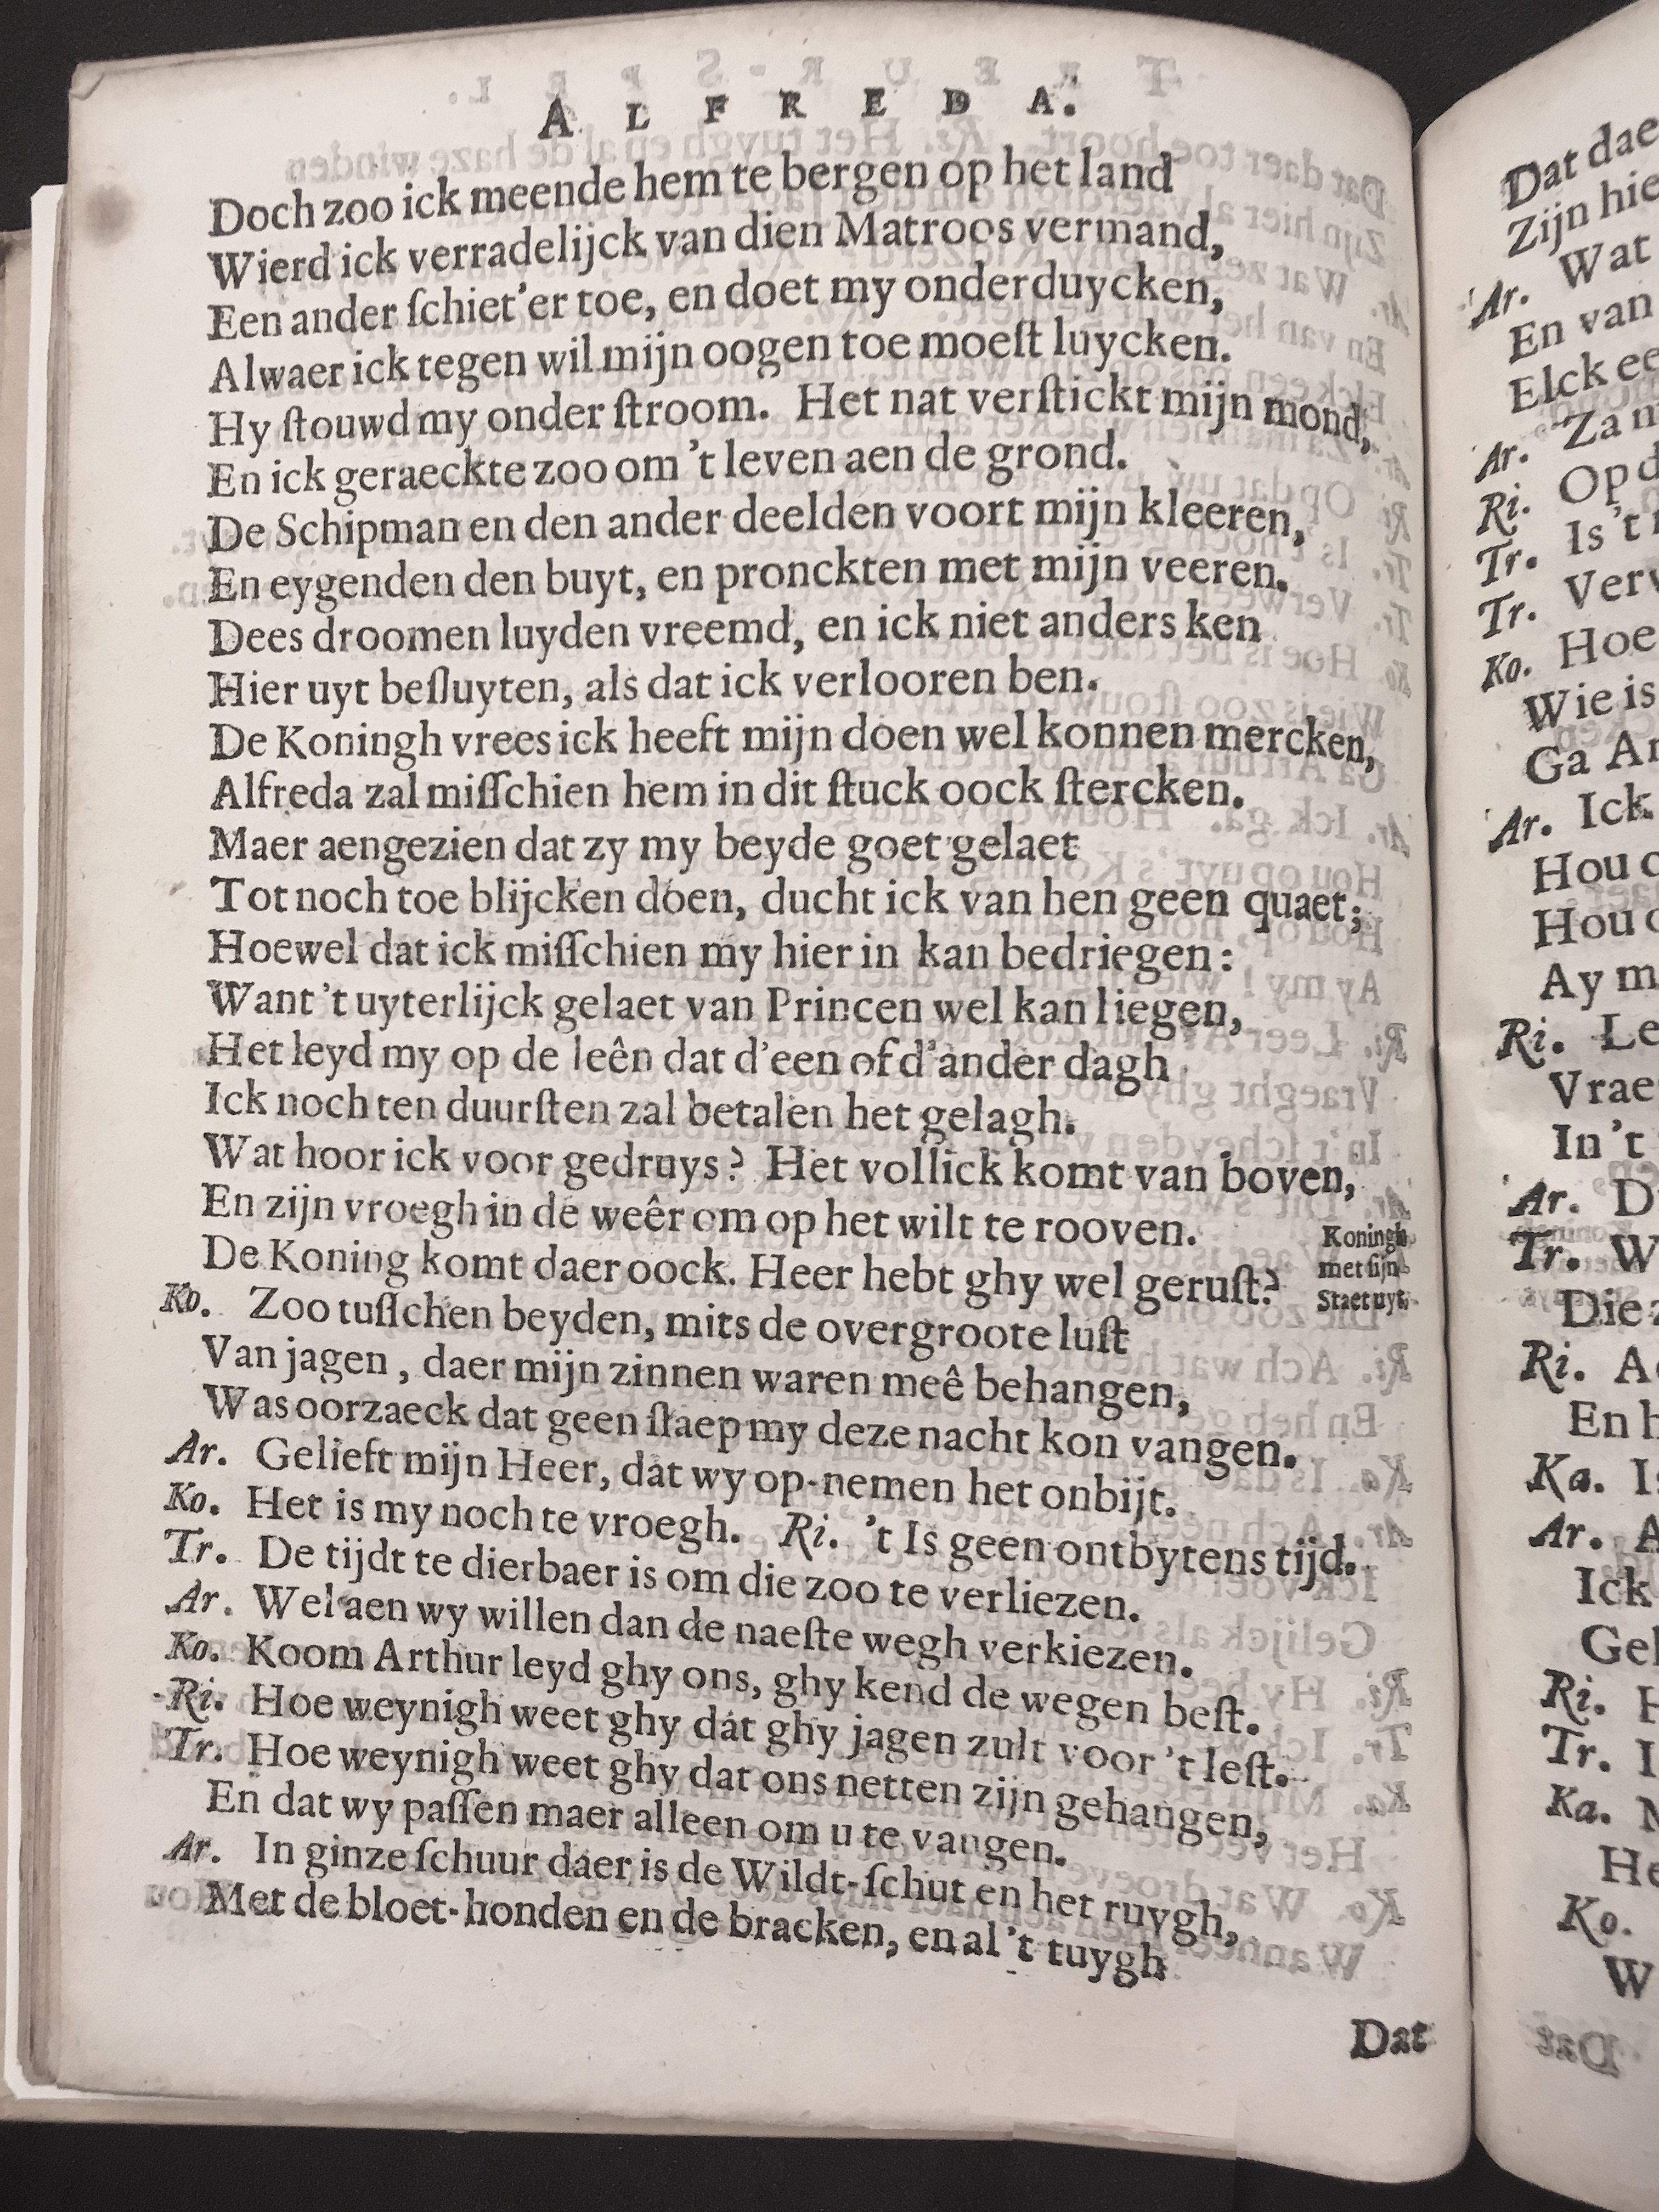 ALFREDA.
Doch zoo ick meende hem te bergen op het land
Wierd ick verradelijck van dien Matroos vermand,
Een ander ſchiet'er toe, en doet my onderduycken,
Alwaer ick tegen wil mijn oogen toe moeſt luycken.
Hy ſtouwd my onder ſtroom. Het nat verſtickt mijn mond,
En ick geraeckte zoo om 't leven aen de grond.
De Schipman en den ander deelden voort mijn kleeren,
En eygenden den buyt, en pronckten met mijn veeren.
Dees droomen luyden vreemd, en ick niet anders ken
Hier uyt beſluyten, als dat ick verlooren ben.
De Koningh vrees ick heeft mijn doen wel konnen mercken,
Alfreda zal miſſchien hem in dit ſtuck oock ſtercken.
Maer aengezien dat zy my beyde goet gelaet
Tot noch toe blijcken doen, ducht ick van hen geen quaet;
Hoewel dat ick miſſchien my hier in kan bedriegen:
Want 't uyterlijck gelaet van Princen wel kan liegen,
Het leyd my op de leên dat d'een of d'ander dagh
Ick noch ten duurſten zal betalen het gelagh.
Wat hoor ick voor gedruys? Het vollick komt van boven,
En zijn vroegh in de weêr om op het wilt te rooven.
De Koning komt daer oock. Heer hebt ghy wel geruſt?
Koningh
met ſijn
Staet uyt.
Ko. Zoo tuſſchen beyden, mits de overgroote luſt
Van jagen, daer mijn zinnen waren meê behangen,
Was oorzaeck dat geen ſlaep my deze nacht kon vangen.
Ar. Gelieft mijn Heer, dat wy op-nemen het onbijt.
Ko. Het is my noch te vroegh. Ri. 't Is geen ontbytens tijd.
Tr. De tijdt te dierbaer is om die zoo te verliezen.
Ar. Wel aen wy willen dan de naeſte wegh verkiezen.
Ko. Koom Arthur leyd ghy ons, ghy kend de wegen beſt.
Ri. Hoe weynigh weet ghy dat ghy jagen zult voor 't leſt.
Tr. Hoe weynigh weet ghy dat ons netten zijn gehangen,
En dat wy paſſen maer alleen om u te vangen.
Ar. In ginze ſchuur daer is de Wildt-ſchut en het ruygh,
Met de bloet-honden en de bracken, en al 't tuygh
Dat
Dat dae
Zijn hie
Ar. Wat
En van
Elck ee
Ar. Za
Ri. Op d
Tr. Is 't
Tr. Verw
Ko. Hoe
Wie is
Ga Ar
Ar. Ick
Hou o
Hou o
Ay m
Ri. Le
Vrae
In 't
Ar. D
Tr. W
Die z
Ri. Ac
En h
Ka. Is
Ar. A
Ick
Gel
Ri. H
Tr. I
Ka.
He
Ko.
W